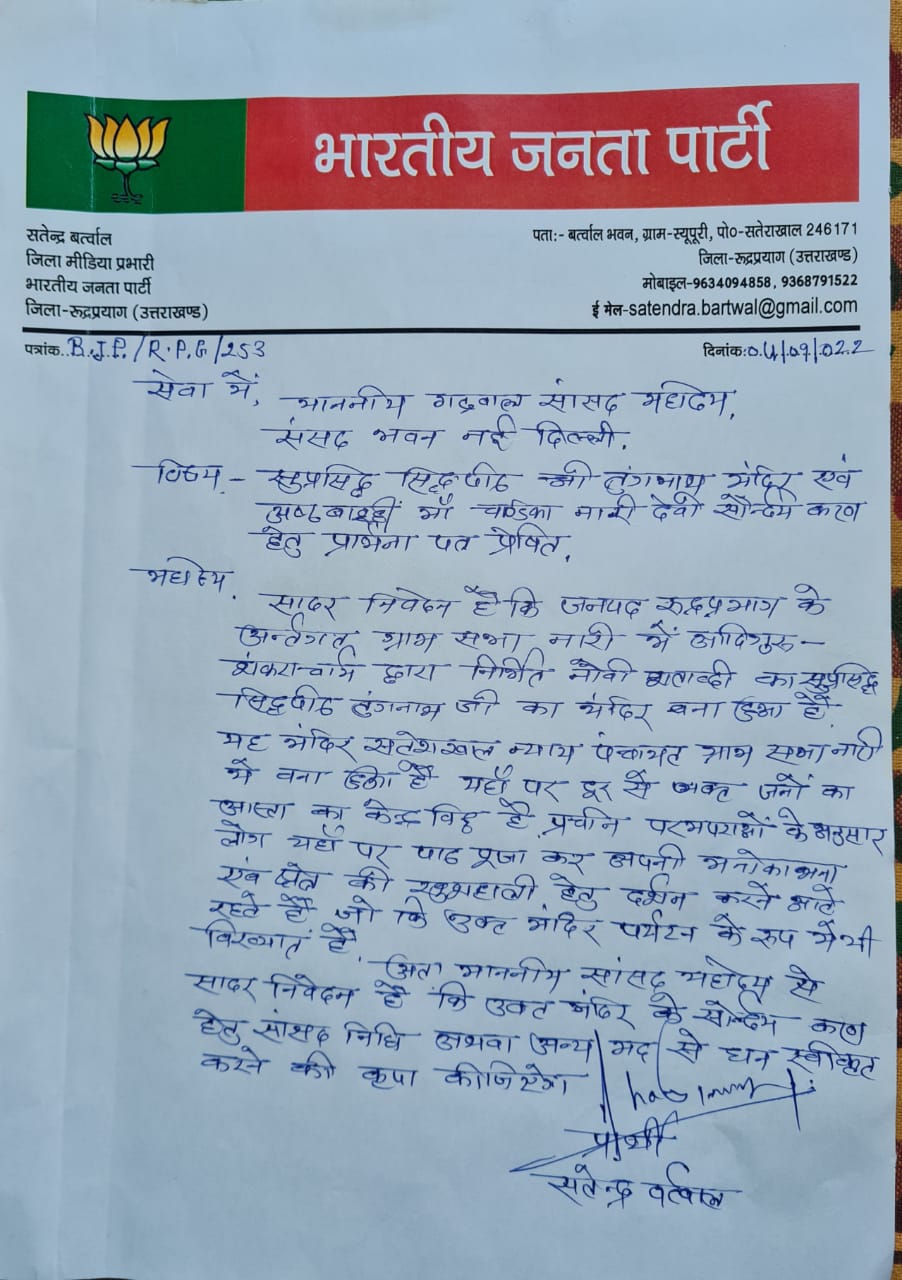 भारतीय जनता पार्टी
सतेन्द्र बर्त्वाल
जिला मीडिया प्रभारी
भारतीय जनता पार्टी
जिला-रूद्रप्रयाग (उत्तराखण्ड)
पता:- बर्त्वाल भवन, ग्राम-स्यूपूरी, पो०-सतेराखाल 246171
जिला-रूद्रप्रयाग (उत्तराखण्ड)
मोबाइल-9634094858, 9368791522
ई मेल-satendra.bartwal@gmail.com
पत्रांक..B.J.P./R.P.G/253
दिनांक:04/09/022
सेवा में,
माननीय गढवाल सांसद महोदय,
संसद भवन नई दिल्ली.
विषय.- सुप्रसिद्ध सिद्धपीठ श्री तुंगनाथ मंदिर एवं
माँ चण्डिका नारी देवी सौन्दर्य करण
हेतु प्रार्थना पत्र प्रेषित.
महोदय.
सादर निवेदन है कि जनपद रुद्रप्रयाग के
अर्न्तगत ग्राम सभा नारी में आदिगुरु-
शंकराचार्य द्वारा निर्मित नौवी शताब्दी का सुप्रसिद्ध
सिद्धपीठ तुंगनाथ जी का मंदिर बना हुआ है.
यह मंदिर सतेराखाल न्याय पंचायत ग्राम सभा नारी
में बना हुआ है यहाँ पर दूर से भक्त जनों का
आस्था का केन्द्र बिन्दु है. प्रचीन परम्पराओं के अनुसार
लोग यहाँ पर पाठ पूजा कर अपनी मनोकामना
एवं क्षेत्र की खुशहाली हेतु दर्शन करने आते
रहते हैं जो कि उक्त मंदिर पर्यटन के रूप में भी
विख्यात है.
अतः माननीय सांसद महोदय से
सादर निवेदन है कि उक्त मंदिर के सौन्दर्य करण
हेतु सांसद निधि अथवा अन्य मद से धन स्वीकृत
करने की कृपा कीजियेगा
प्रार्थी
सतेन्द्र बर्त्वाल